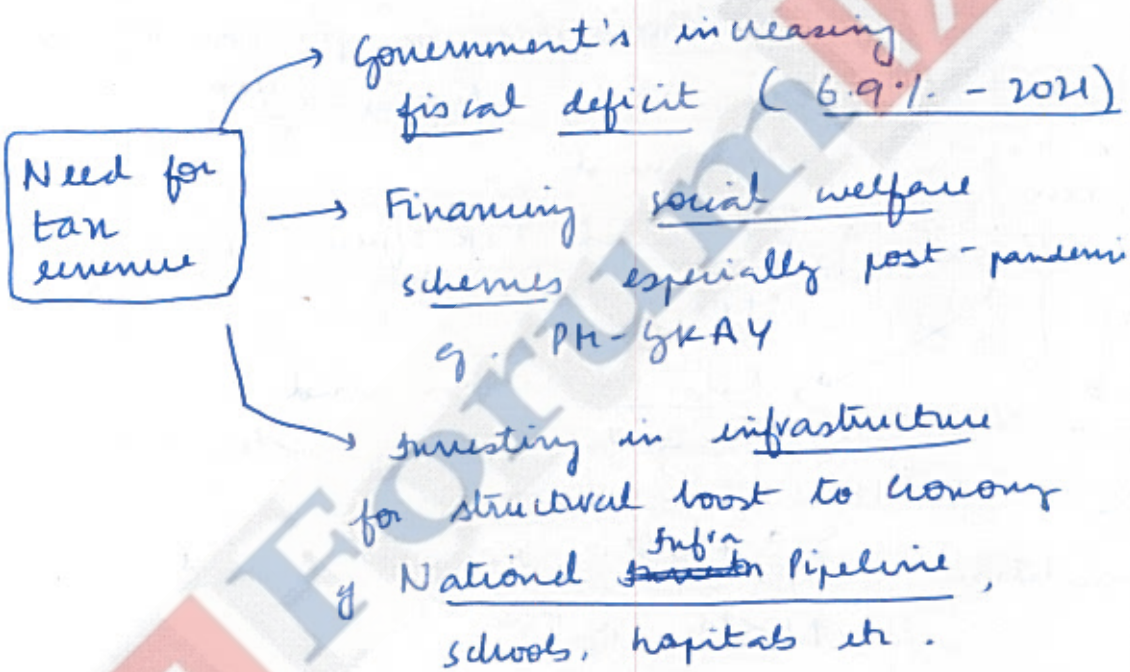 Government's increasing
fiscal deficit (6.9% - 2021)
Need for
tax
revenue
Financing social welfare
schemes especially post-pandemi
eg. PM-GKAY
Investing in infrastructure
for structural boost to economy
eg National Infra Pipeline,
schools, hospitals etc.
Forum